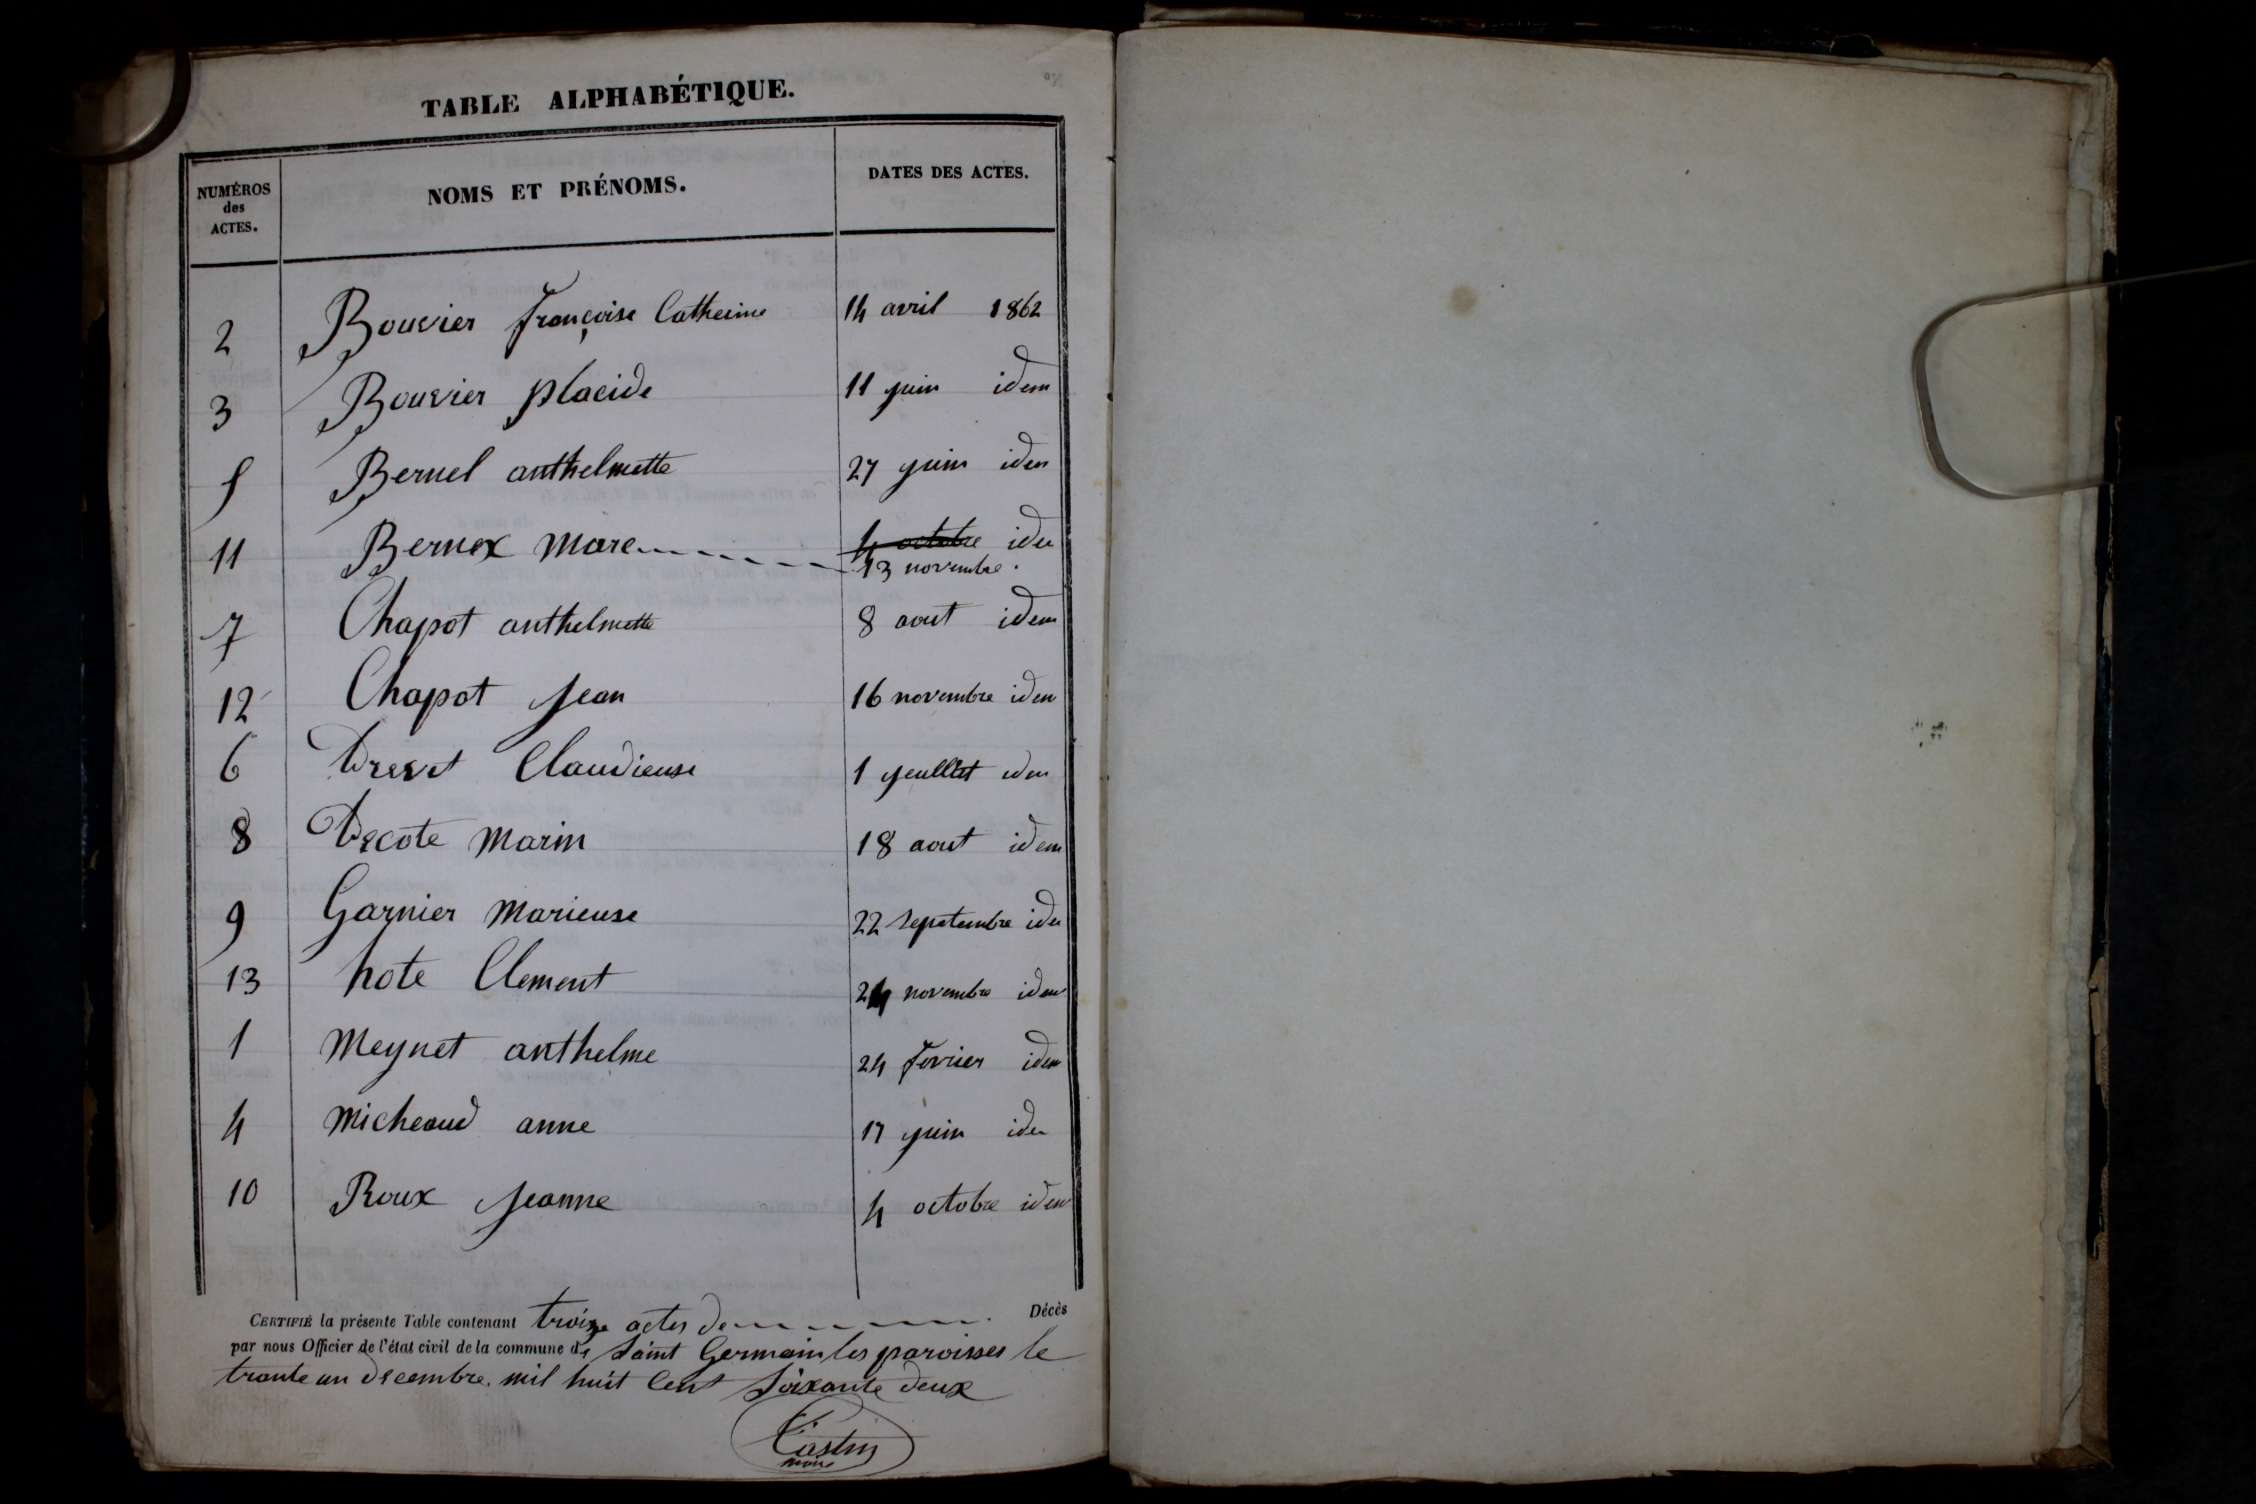 TABLE ALPHABÉTIQUE.
NUMÉROS des ACTES. NOMS ET PRÉNOMS. DATES DES ACTES.
2 Bouvier françoise Catherine 14 avril 1862
3 Bouvier placide 11 juin idem
5 Bernel anthelmette 27 juin idem
11 Bernex marc 4 octobre idem
13 novembre.
7 Chapot anthelmette 8 aout idem
12 Chapot Jean 16 novembre idem
6 Drevet Claudieuse 1 jeulllet idem
8 Decote marin 18 aout idem
9 Garnier marieuse 22 septembre idem
13 hote Clement 24 novembre idem
1 meynet anthelme 24 fevrier idem
4 micheaud anne 17 juin idem
10 Roux Jeanne 4 octobre idem
CERTIFIÉ la présente Table contenant treize actes de Décès
par nous Officier de l'état civil de la commune de Saint Germain les paroisses le
trante un decembre. mil huit Cent Soixante deux
maire